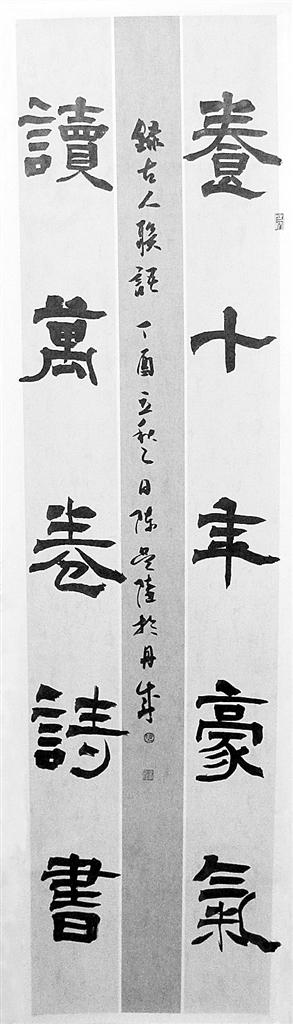 養十年豪氣
讀萬卷詩書
錄古人聯語 丁酉立秋之日陳星陸於丹城